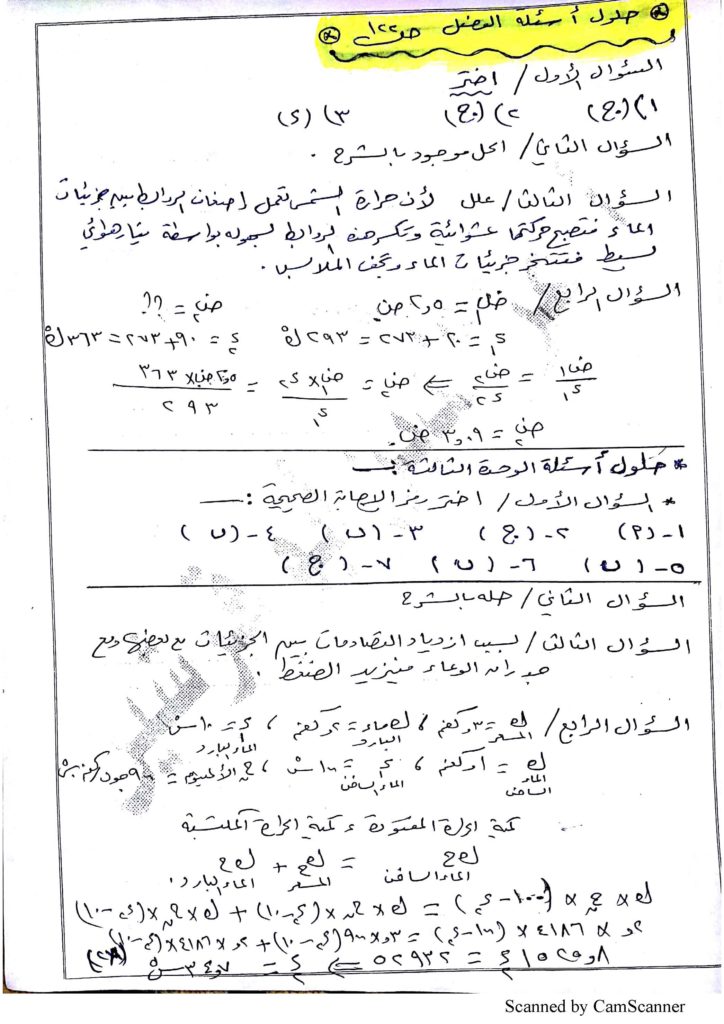 * حلول أسئلة الفصل ص ١٢٢ *
السؤال الأول / اختر
١) (ج) ٢) (ج) ٣) (د)
السؤال الثاني / الحل موجود بالشرح .
السؤال الثالث / علل لأن حرارة الشمس تعمل إضعاف الروابط بين جزيئات
الماء فتصبح حركتها عشوائية وتكسر هذه الروابط بسهوله بواسطة تيار هوائي
بسيط فتتبخر جزيئات الماء وتجف الملابس .
السؤال الرابع / ض١ = ٢٫٥ ض ض٢ = ؟؟
د١ = ٢٠ + ٢٧٣ = ٢٩٣ ك د٢ = ٩٠ + ٢٧٣ = ٣٦٣ ك
ض١/د١ = ض٢/د٢ ⇐ ض٢ = ض١ × د٢/د١ = ٢٫٥ ض × ٣٦٣/٢٩٣
ض٢ = ٣٫٠٩ ض .
* حلول أسئلة الوحدة الثالثة :ـ
* السؤال الأول / اختر رمز الإجابة الصحيحة :ـ
١- (P) ٢- (ج) ٣- (ب) ٤- (ب)
٥- (ب) ٦- (ب) ٧- (ج)
السؤال الثاني / حله بالشرح
السؤال الثالث / بسبب ازدياد التصادمات بين الجزيئات مع بعضها ومع
جدران الوعاء فيزيد الضغط .
السؤال الرابع / ك المسعر = ٣و كغم ، ك ماء البارد = ٢و كغم ، د الماء البارد = ١٠ س
ك الماء الساخن = كغم ، د الماء الساخن = ١٠٠ س ، ح الألمنيوم = جول/كغم.س
كمية الحرارة المفقودة = كمية الحرارة المكتسبة
كح الماء الساخن = كح المسعر + كح الماء البارد .
ك × ح × (١٠٠ - د) = ك × ح × (د - ١٠) + ك × ح × (د - ١٠)
× ٤١٨٦ × (١٠٠ - د) = ٣و × (د - ١٠) + ٢و × ٤١٨٦ × (د - ١٠)
= ٥٢٩٣٢ ⇐ د = ٣٤٫٧ س
Scanned by CamScanner